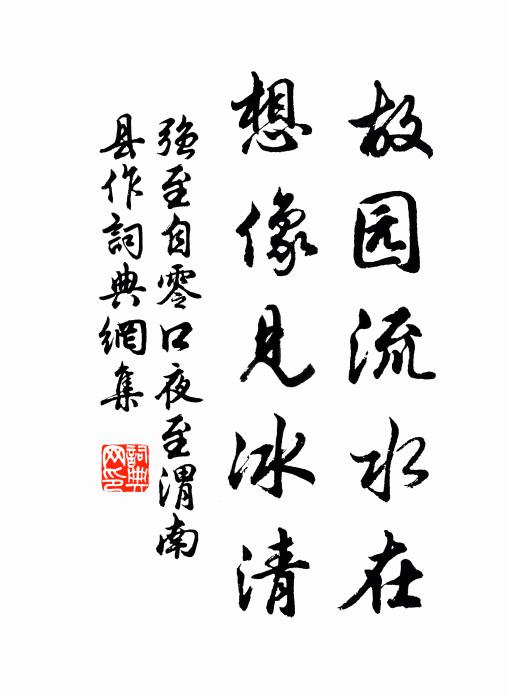 故园流水在
想像见冰清
强至自零口夜至渭南
县作詞典網集
詞典网印